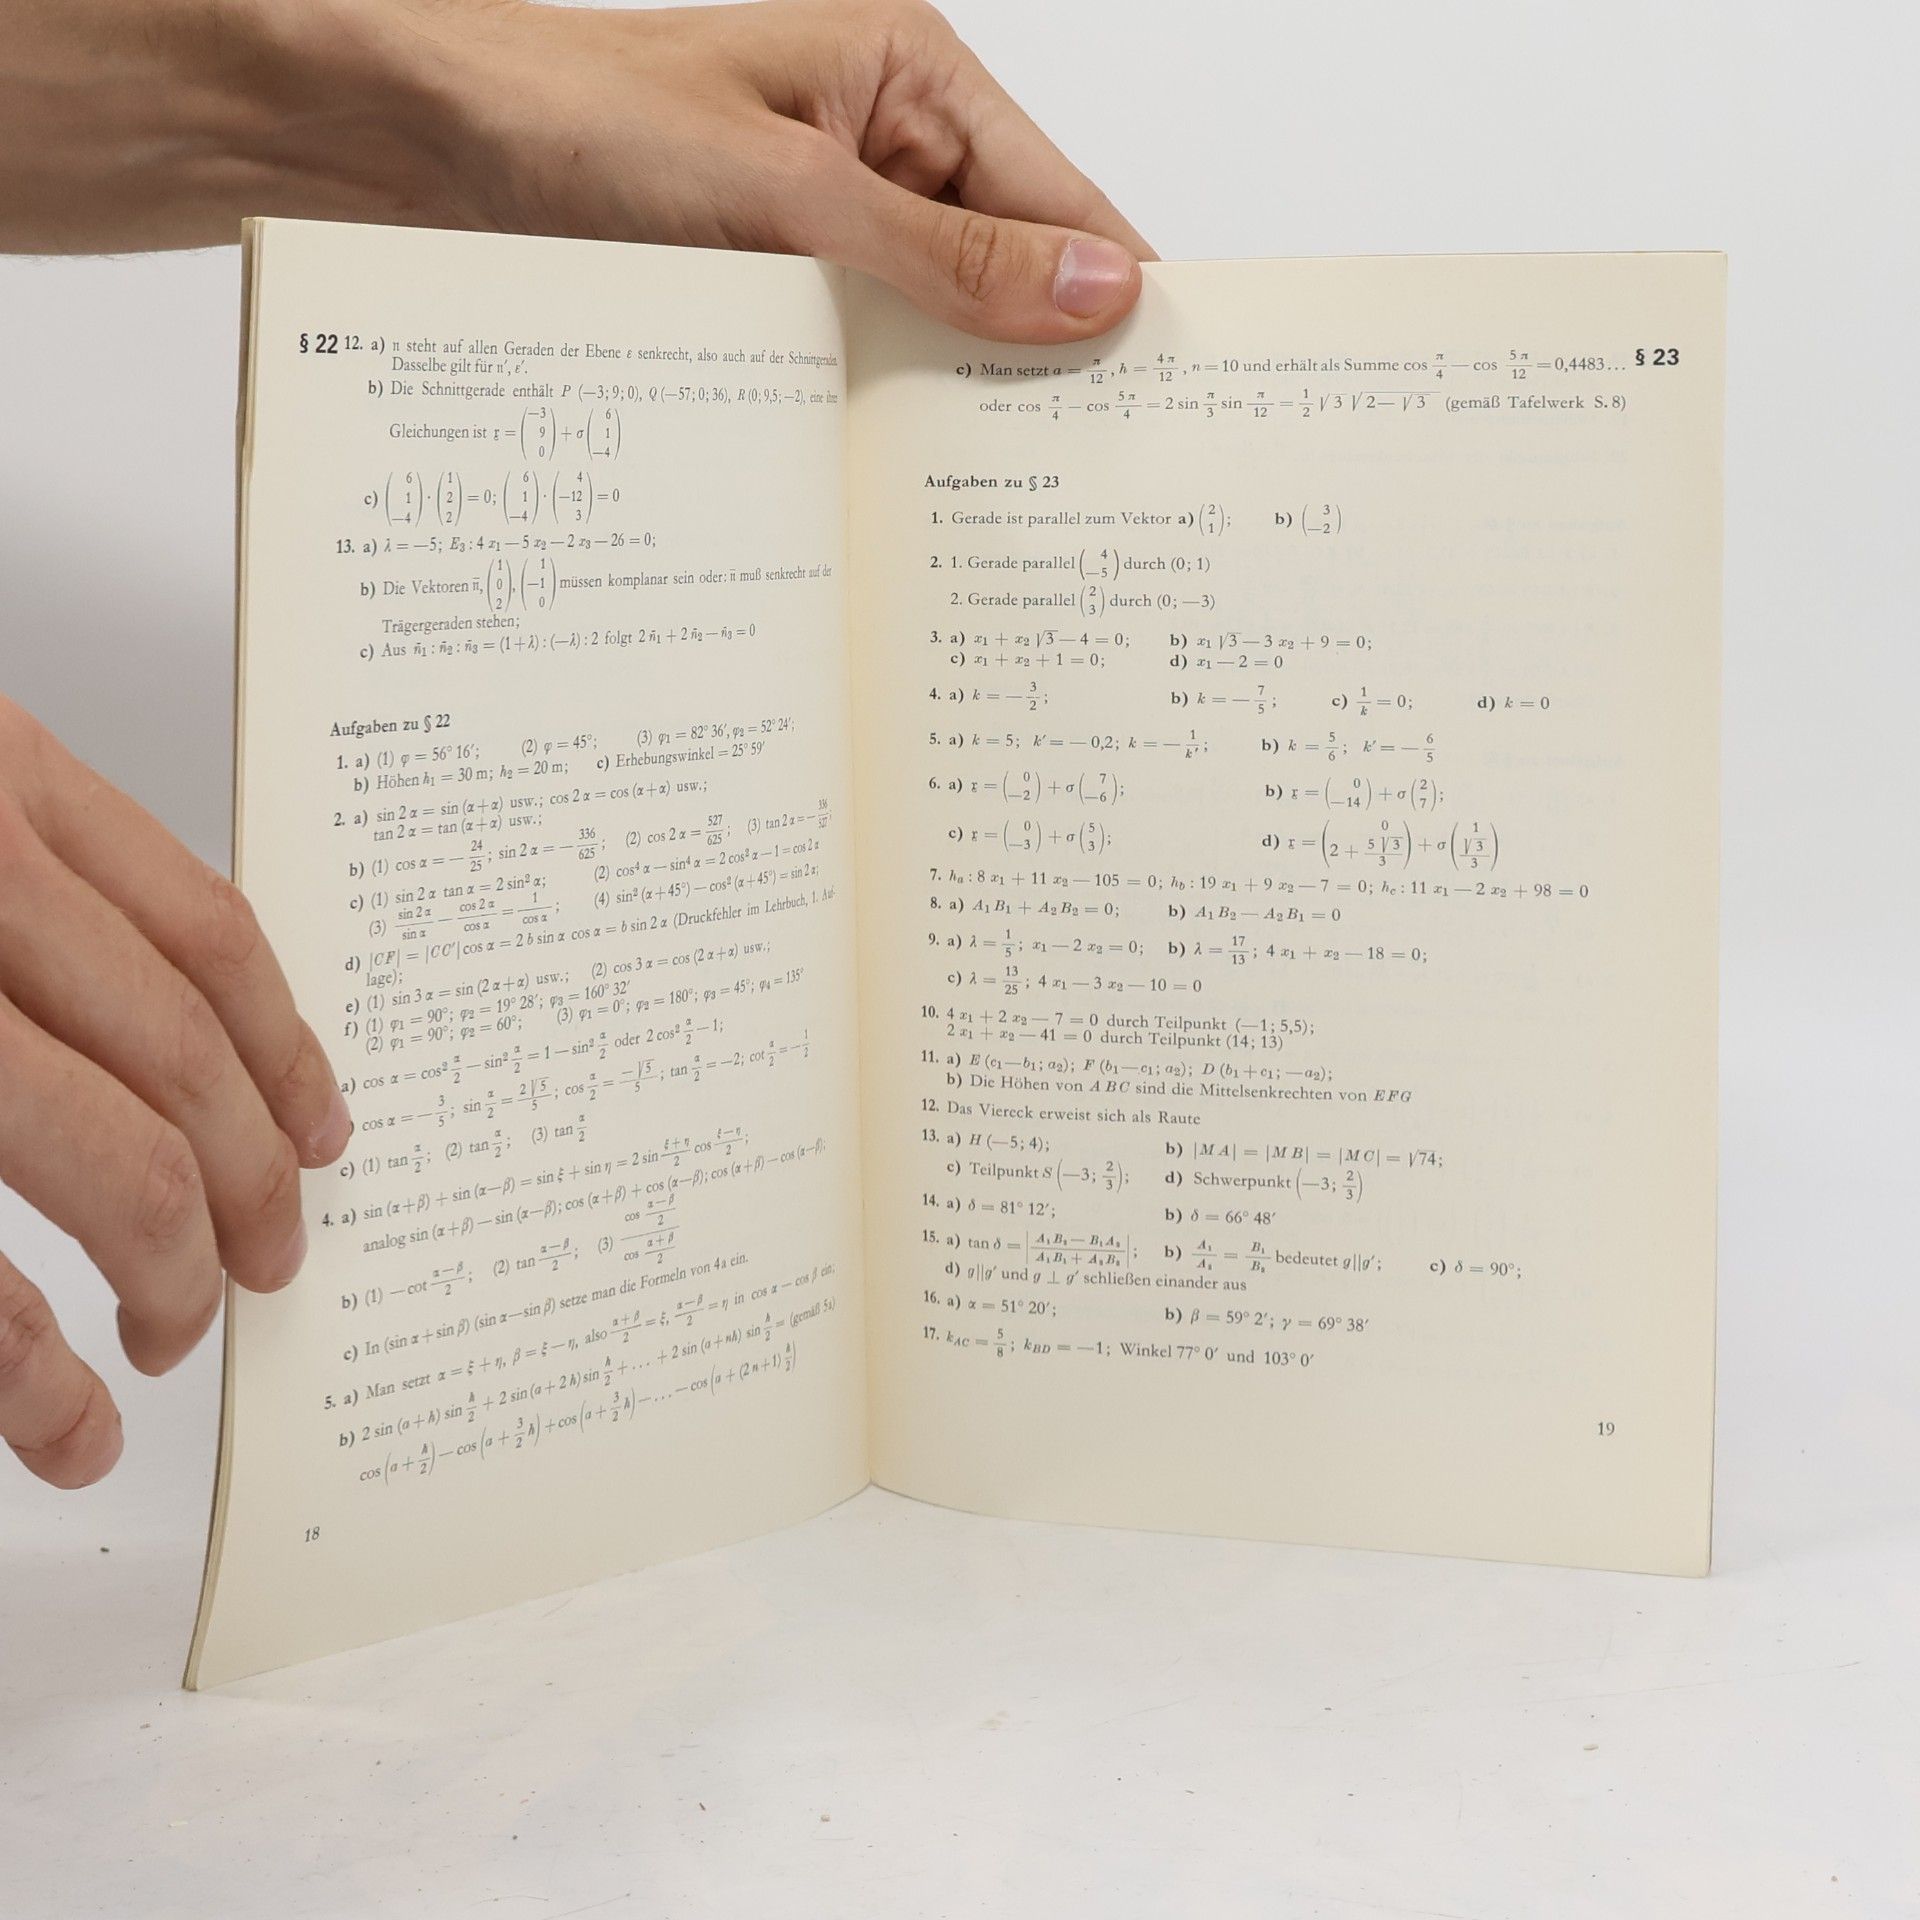 § 22 12. a) n steht auf allen Geraden der Ebene ε senkrecht, also auch auf der Schnittgeraden.
Dasselbe gilt für n′, ε′.
b) Die Schnittgerade enthält P (—3; 9; 0), Q (—57; 0; 36), R (0; 9,5; —2), eine ihrer
Gleichungen ist 𝔵 = (—3 9 0) + σ (6 1 —4)
c) (6 1 —4) · (1 2 2) = 0; (6 1 —4) · (4 —12 3) = 0
13. a) λ = —5; E₃ : 4 x₁ — 5 x₂ — 2 x₃ — 26 = 0;
b) Die Vektoren n̄, (1 0 2), (1 —1 0) müssen komplanar sein oder: n̄ muß senkrecht auf der
Trägergeraden stehen;
c) Aus n̄₁ : n̄₂ : n̄₃ = (1+λ) : (—λ) : 2 folgt 2 n̄₁ + 2 n̄₂ — n̄₃ = 0
Aufgaben zu § 22
1. a) (1) φ = 56° 16′; (2) φ = 45°; (3) φ₁ = 82° 36′, φ₂ = 52° 24′;
b) Höhen h₁ = 30 m; h₂ = 20 m; c) Erhebungswinkel = 25° 59′
2. a) sin 2 α = sin (α+α) usw.; cos 2 α = cos (α+α) usw.;
tan 2 α = tan (α+α) usw.;
b) (1) cos α = — 24/25; sin 2 α = — 336/625; (2) cos 2 α = 527/625; (3) tan 2 α = — 336/527;
c) (1) sin 2 α tan α = 2 sin² α; (2) cos⁴ α — sin⁴ α = 2 cos² α — 1 = cos 2 α
(3) sin 2 α/sin α — cos 2 α/cos α = 1/cos α; (4) sin² (α+45°) — cos² (α+45°) = sin 2 α;
d) |CF| = |CC′| cos α = 2 b sin α cos α = b sin 2 α (Druckfehler im Lehrbuch, 1. Auf-
lage);
e) (1) sin 3 α = sin (2 α+α) usw.; (2) cos 3 α = cos (2 α+α) usw.;
f) (1) φ₁ = 90°; φ₂ = 19° 28′; φ₃ = 160° 32′
(2) φ₁ = 90°; φ₂ = 60°; (3) φ₁ = 0°; φ₂ = 180°; φ₃ = 45°; φ₄ = 135°
a) cos α = cos² α/2 — sin² α/2 = 1 — sin² α/2 oder 2 cos² α/2 — 1;
) cos α = — 3/5; sin α/2 = 2√5/5; cos α/2 = —√5/5; tan α/2 = —2; cot α/2 = — 1/2
c) (1) tan α/2; (2) tan α/2; (3) tan α/2
4. a) sin (α+β) + sin (α—β) = sin ξ + sin η = 2 sin ξ+η/2 cos ξ—η/2;
analog sin (α+β) — sin (α—β); cos (α+β) + cos (α—β); cos (α+β) — cos (α—β);
b) (1) — cot α—β/2; (2) tan α—β/2; (3) cos α—β/2 / cos α+β/2
c) In (sin α + sin β) (sin α — sin β) setze man die Formeln von 4a ein.
5. a) Man setzt α = ξ + η, β = ξ — η, also α+β/2 = ξ, α—β/2 = η in cos α — cos β ein;
b) 2 sin (a + h) sin h/2 + 2 sin (a + 2 h) sin h/2 + . . . + 2 sin (a + nh) sin h/2 = (gemäß 5a)
cos (a + h/2) — cos (a + 3/2 h) + cos (a + 3/2 h) — . . . — cos (a + (2 n + 1) h/2)
18
c) Man setzt a = π/12, h = 4 π/12, n = 10 und erhält als Summe cos π/4 — cos 5 π/12 = 0,4483 . . . § 23
oder cos π/4 — cos 5 π/4 = 2 sin π/3 sin π/12 = 1/2 √3 √2— √3 (gemäß Tafelwerk S. 8)
Aufgaben zu § 23
1. Gerade ist parallel zum Vektor a) (2 1); b) (3 —2)
2. 1. Gerade parallel (4 —5) durch (0; 1)
2. Gerade parallel (2 3) durch (0; —3)
3. a) x₁ + x₂ √3 — 4 = 0; b) x₁ √3 — 3 x₂ + 9 = 0;
c) x₁ + x₂ + 1 = 0; d) x₁ — 2 = 0
4. a) k = — 3/2; b) k = — 7/5; c) 1/k = 0; d) k = 0
5. a) k = 5; k′ = — 0,2; k = — 1/k′; b) k = 5/6; k′ = — 6/5
6. a) 𝔵 = (0 —2) + σ (7 —6); b) 𝔵 = (0 —14) + σ (2 7);
c) 𝔵 = (0 —3) + σ (5 3); d) 𝔵 = (0 2 + 5√3/3) + σ (1 √3/3)
7. hₐ : 8 x₁ + 11 x₂ — 105 = 0; h_b : 19 x₁ + 9 x₂ — 7 = 0; h_c : 11 x₁ — 2 x₂ + 98 = 0
8. a) A₁ B₁ + A₂ B₂ = 0; b) A₁ B₂ — A₂ B₁ = 0
9. a) λ = 1/5; x₁ — 2 x₂ = 0; b) λ = 17/13; 4 x₁ + x₂ — 18 = 0;
c) λ = 13/25; 4 x₁ — 3 x₂ — 10 = 0
10. 4 x₁ + 2 x₂ — 7 = 0 durch Teilpunkt (—1; 5,5);
2 x₁ + x₂ — 41 = 0 durch Teilpunkt (14; 13)
11. a) E (c₁—b₁; a₂); F (b₁—c₁; a₂); D (b₁ + c₁; —a₂);
b) Die Höhen von A B C sind die Mittelsenkrechten von E F G
12. Das Viereck erweist sich als Raute
13. a) H (—5; 4); b) |M A| = |M B| = |M C| = √74;
c) Teilpunkt S (—3; 2/3); d) Schwerpunkt (—3; 2/3)
14. a) δ = 81° 12′; b) δ = 66° 48′
15. a) tan δ = |A₁ B₂ — B₁ A₂ / A₁ B₁ + A₂ B₂|; b) A₁/A₂ = B₁/B₂ bedeutet g||g′; c) δ = 90°;
d) g||g′ und g ⊥ g′ schließen einander aus
16. a) α = 51° 20′; b) β = 59° 2′; γ = 69° 38′
17. k_AC = 5/8; k_BD = —1; Winkel 77° 0′ und 103° 0′
19